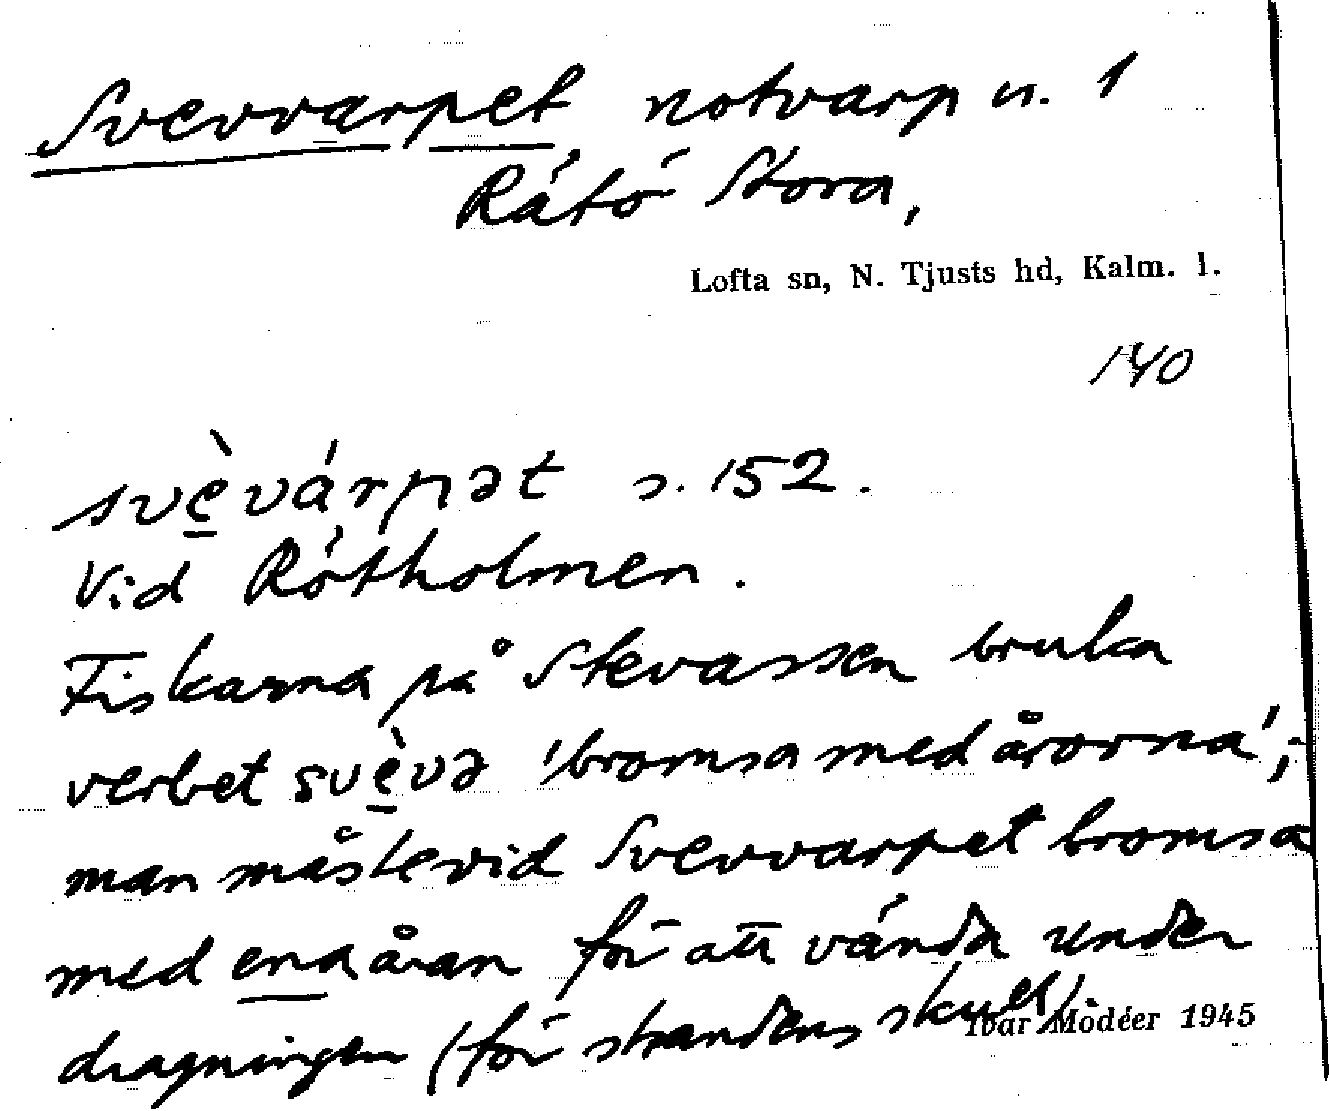 Svevvarpet notvarp n. 1
Rätö Stora,
Lofta sn, N. Tjusts hd, Kalm. l.
140
svè̱várpət s. 152.
Vid Rötholmen.
Fiskarna på Stevassen bruka
verbet svè̱və 'bromsa med årorna';
man måste vid Svevvarpet bromsa
med ena åran för att vända under
dragningen (för strandens skull).
Ivar Modéer 1945